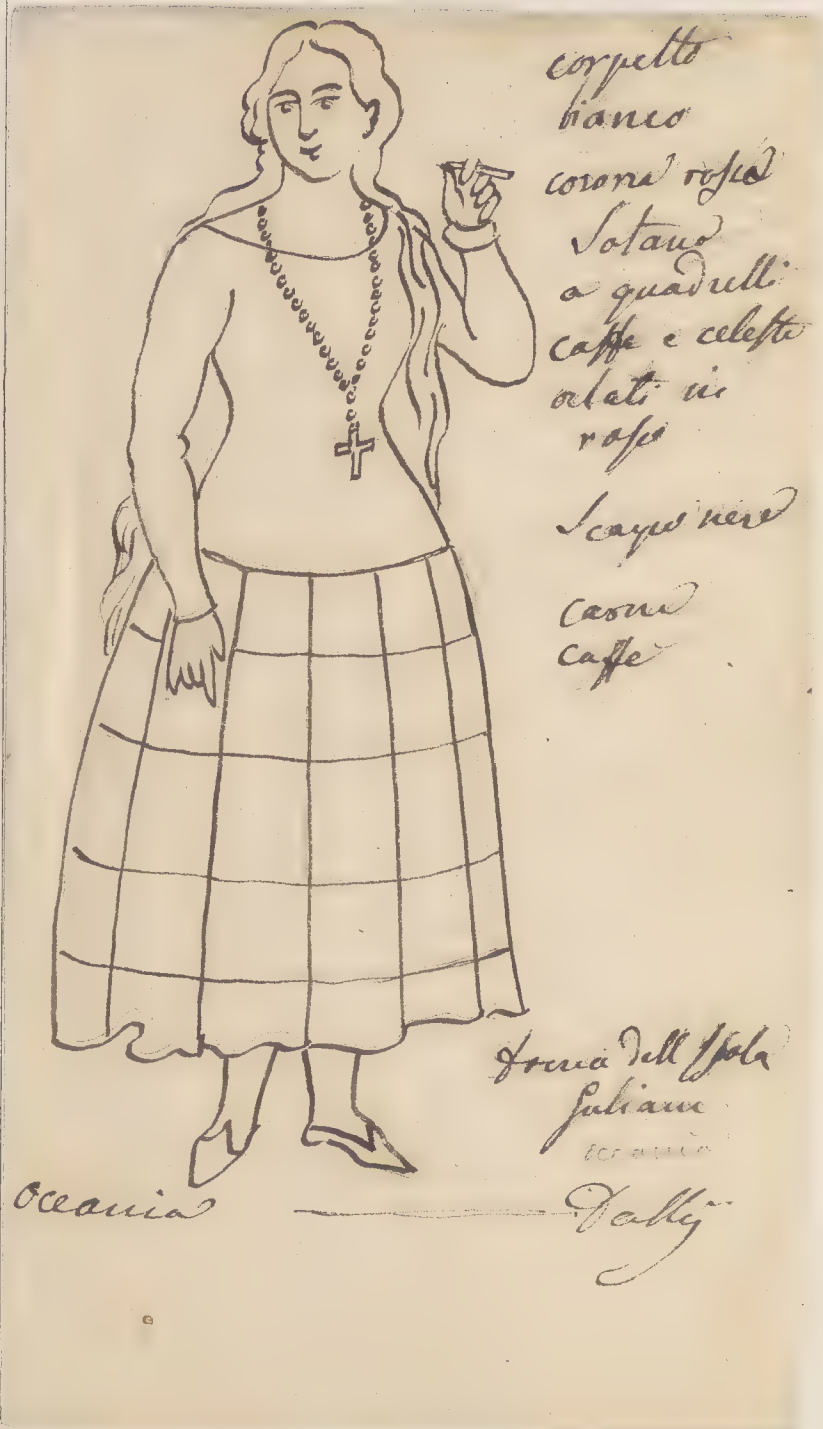 corpetto
bianco
corona rossa
Sotano
a quadrelli
caffe e celeste
orlati in
rosso
Scarpe nere
carne
caffe
donna dell Isola
Guliane
oceania
Oceania